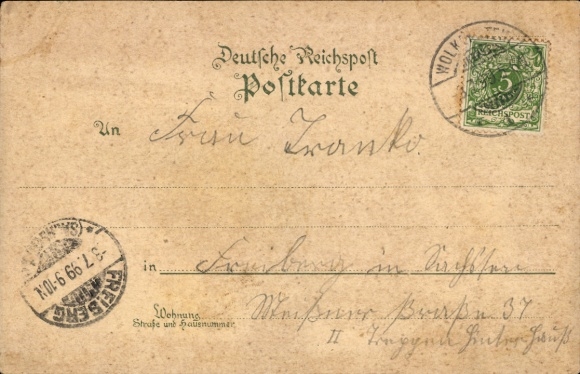 Deutsche Reichspost
Postkarte
WOLKENSTEIN
5
REICHSPOST
An Frau Franko.
in Freiberg in Sachsen
Wohnung
Straße und Hausnummer
Meißner Straße 37
II Treppen Hinterhauß
(SACHSEN)
3.7.99.9-10.N.
FREIBERG